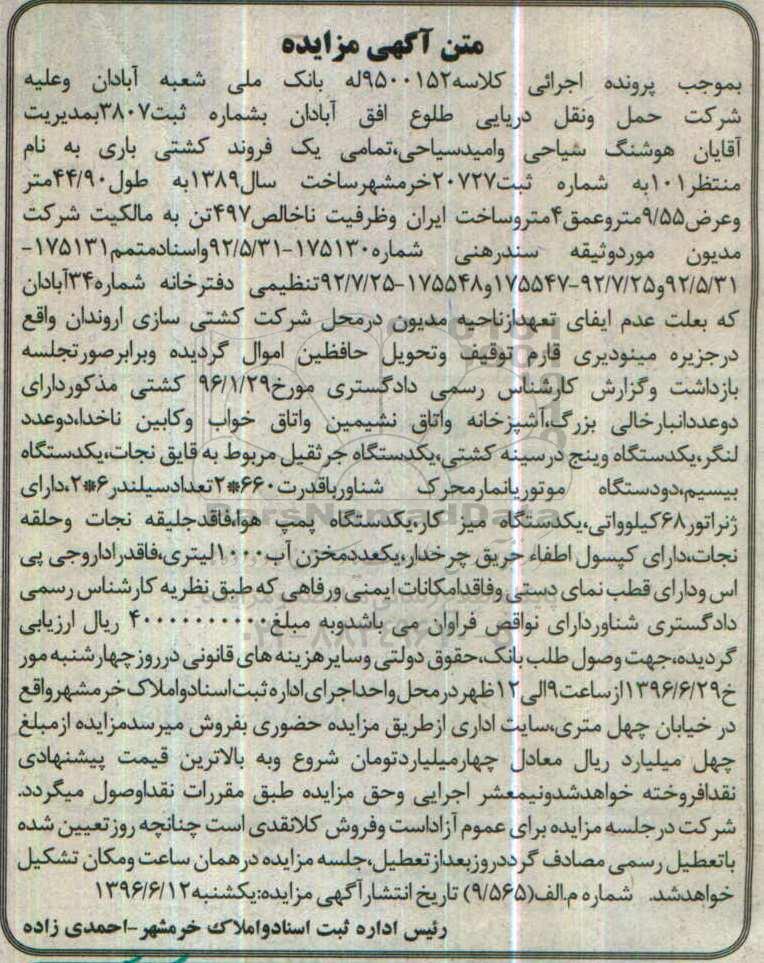 متن آگهی مزایده
بموجب پرونده اجرائی کلاسه۹۵۰۰۱۵۲له بانک ملی شعبه آبادان وعلیه
شرکت حمل ونقل دریایی طلوع افق آبادان بشماره ثبت۳۸۰۷بمدیریت
آقایان هوشنگ شیاحی وامیدسیاحی،تمامی یک فروند کشتی باری به نام
منتظر۱۰۱به شماره ثبت۲۰۷۲۷خرمشهرساخت سال۱۳۸۹به طول۴۴/۹۰متر
وعرض۹/۵۵متروعمق۴متروساخت ایران وظرفیت ناخالص۴۹۷تن به مالکیت شرکت
مدیون موردوثیقه سندرهنی شماره۱۷۵۱۳۰-۹۲/۵/۳۱واسنادمتمم۱۷۵۱۳۱-
۹۲/۵/۳۱و۹۲/۷/۲۵-۱۷۵۵۴۷و۱۷۵۵۴۸-۹۲/۷/۲۵تنظیمی دفترخانه شماره۳۴آبادان
که بعلت عدم ایفای تعهدازناحیه مدیون درمحل شرکت کشتی سازی اروندان واقع
درجزیره مینودیری فارم توقیف وتحویل حافظین اموال گردیده وبرابرصورتجلسه
بازداشت وگزارش کارشناس رسمی دادگستری مورخ۹۶/۱/۲۹ کشتی مذکوردارای
دوعددانبارخالی بزرگ،آشپزخانه واتاق نشیمین واتاق خواب وکابین ناخدا،دوعدد
لنگر،یکدستگاه وینچ درسینه کشتی،یکدستگاه جرثقیل مربوط به قایق نجات،یکدستگاه
بیسیم،دودستگاه موتوریانمارمحرک شناورباقدرت۶۶۰*۲تعدادسیلندر۶*۲،دارای
ژنراتور۶۸کیلوواتی،یکدستگاه میز کار،یکدستگاه پمپ هوا،فاقدجلیقه نجات وحلقه
نجات،دارای کپسول اطفاء حریق چرخدار،یکعددمخزن آب۱۰۰۰لیتری،فاقدراداروجی پی
اس ودارای قطب نمای دستی وفاقدامکانات ایمنی ورفاهی که طبق نظریه کارشناس رسمی
دادگستری شناوردارای نواقص فراوان می باشدوبه مبلغ۴۰۰۰۰۰۰۰۰۰۰ ریال ارزیابی
گردیده،جهت وصول طلب بانک،حقوق دولتی وسایرهزینه های قانونی درروزچهارشنبه مور
خ۱۳۹۶/۶/۲۹ازساعت۹الی۱۲ظهردرمحل واحداجرای اداره ثبت اسنادواملاک خرمشهرواقع
در خیابان چهل متری،سایت اداری ازطریق مزایده حضوری بفروش میرسدمزایده ازمبلغ
چهل میلیارد ریال معادل چهارمیلیاردتومان شروع وبه بالاترین قیمت پیشنهادی
نقدافروخته خواهدشدونیمعشر اجرایی وحق مزایده طبق مقررات نقداوصول میگردد.
شرکت درجلسه مزایده برای عموم آزاداست وفروش کلانقدی است چنانچه روزتعیین شده
باتعطیل رسمی مصادف گرددروزبعدازتعطیل،جلسه مزایده درهمان ساعت ومکان تشکیل
خواهدشد. شماره م.الف(۹/۵۶۵) تاریخ انتشارآگهی مزایده:یکشنبه۱۳۹۶/۶/۱۲
رئیس اداره ثبت اسنادواملاک خرمشهر-احمدی زاده
ParsNamadData